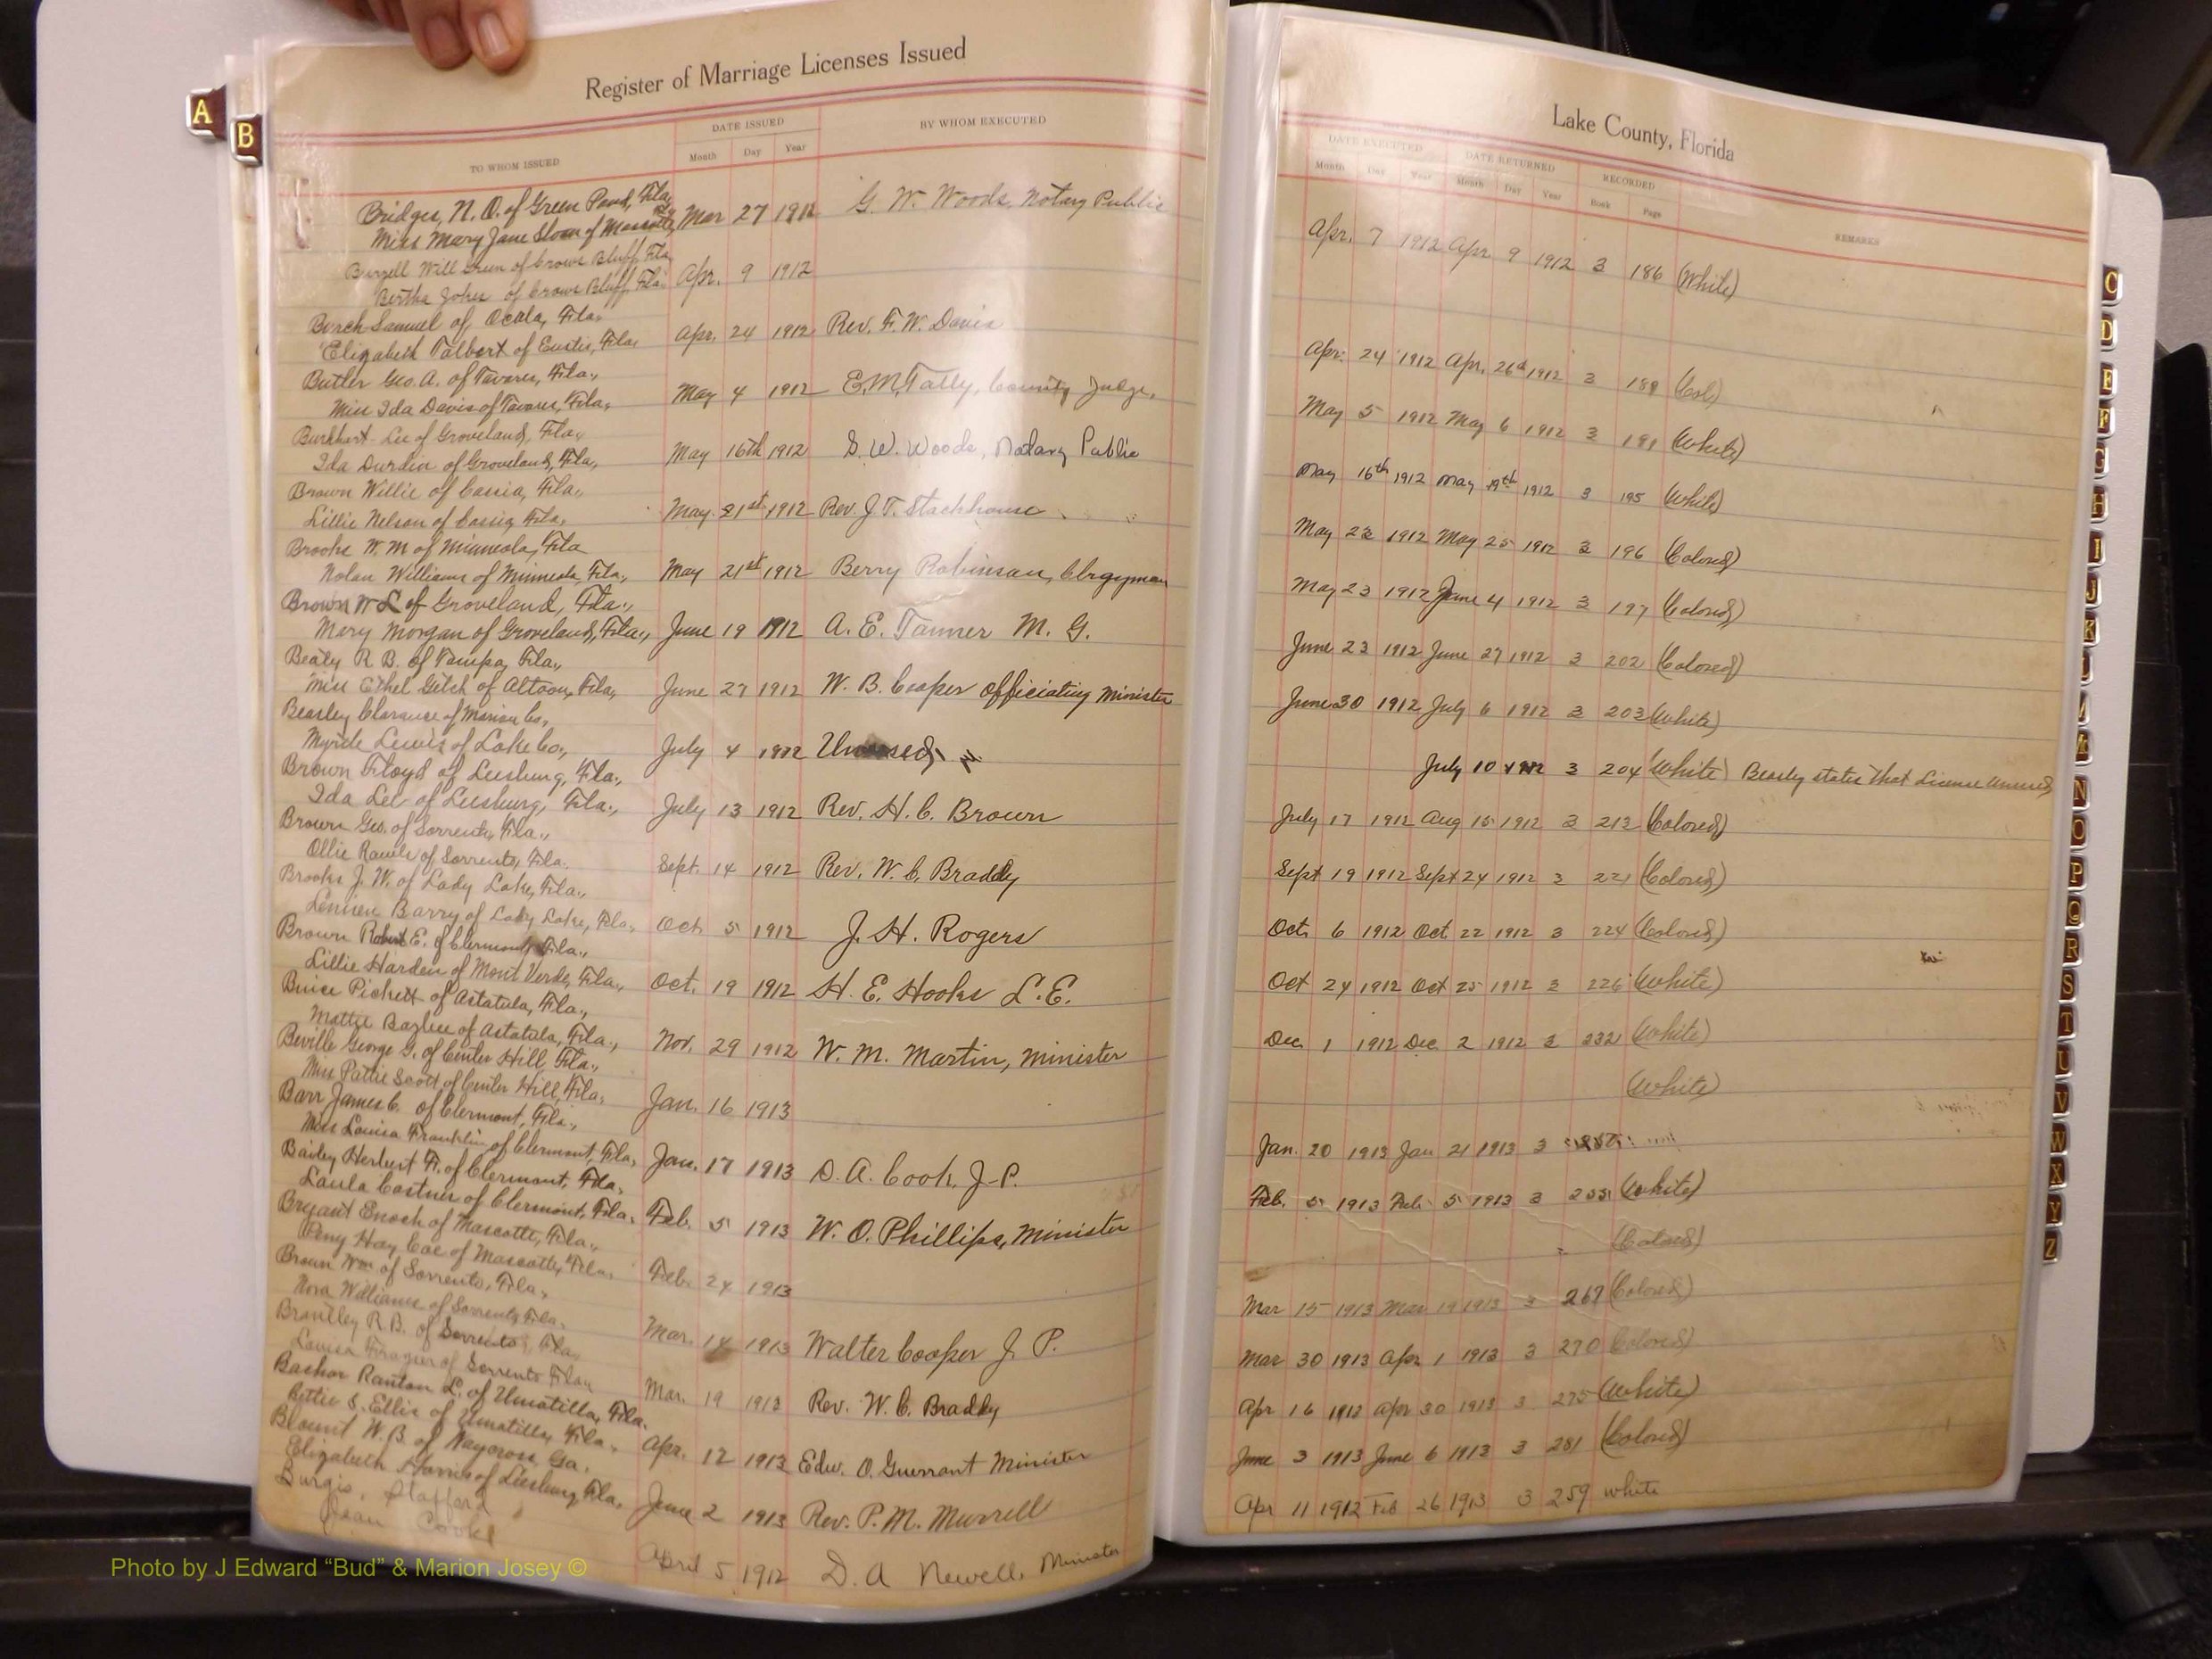 Register of Marriage Licenses Issued
TO WHOM ISSUED
DATE ISSUED
Month Day Year
BY WHOM EXECUTED
A
B
Bridges, N. O. of Green Pond, Fla.
Miss Mary Jane Sloan of Mascotte, Fla. Mar 27 1912 G. W. Woods, Notary Public
Will Green of Crows Bluff, Fla.
Bertha of Crows Bluff, Fla. Apr. 9 1912
Burch Samuel of Ocala, Fla.
Elizabeth Talbert of Eustis, Fla. Apr. 24 1912 Rev. F. W. Davis
Butler Geo. A. of Tavares, Fla.,
Miss Ida Davis of Tavares, Fla., May 4 1912 E. M. Tally, County Judge,
Burkhart Lee of Groveland, Fla.,
Ida Durdin of Groveland, Fla., May 16th 1912 G. W. Woods, Notary Public
Brown Willie of Cassia, Fla.,
Lillie Nelson of Cassia, Fla., May 21st 1912 Rev. J. T. Stackhouse
Brooks W. M of Minneola, Fla
Nolan Williams of Minneola, Fla., May 21st 1912 Berry Robinson, Clrgyman
Brown W L of Groveland, Fla.,
Mary Morgan of Groveland, Fla., June 19 1912 A. E. Tanner M. G.
Bealy R. B. of Tampa, Fla.,
Miss Ethel Gitch of Altoona, Fla., June 27 1912 W. B. Cooper officiating Minister
Beasley Clarance of Marion Co.,
Myrtle Lewis of Lake Co., July 4 1912 Unused
Brown Floyd of Leesburg, Fla.,
Ida Lee of Leesburg, Fla., July 13 1912 Rev. H. C. Brown
Brown Geo. of Sorrento, Fla.,
Ollie of Sorrento, Fla. Sept. 14 1912 Rev. W. C. Braddy
Brooks J. W. of Lady Lake, Fla.,
Barry of Lady Lake, Fla., Oct 5 1912 J. H. Rogers
Brown Robert E. of Clermont, Fla.,
Lillie Harden of Mont Verde, Fla., Oct. 19 1912 H. E. Hooks L. E.
Pickett of Astatula, Fla.,
Mattie of Astatula, Fla., Nov. 29 1912 W. M. Martin, Minister
Beville George G. of Center Hill, Fla.,
Miss Pattie Scott of Center Hill, Fla., Jan. 16 1913
Barr James C. of Clermont, Fla.,
Miss Louisa Franklin of Clermont, Fla., Jan. 17 1913 D. A. Cook, J-P.
Bailey Herbert F. of Clermont, Fla.,
Laula Costner of Clermont, Fla., Feb. 5 1913 W. O. Phillips, Minister
Bryant Enoch of Mascotte, Fla.,
of Mascotte, Fla., Feb. 24 1913
Brown Wm. of Sorrento, Fla.,
Nora Williams of Sorrento, Fla. Mar. 14 1913 Walter Cooper J. P.
Brantley R. B. of Sorrento, Fla.,
Louisa of Sorrento Fla., Mar. 19 1913 Rev. W. C. Braddy
Bashor Ranton L. of Umatilla, Fla.
Bettie S. Ellis of Umatilla, Fla., Apr. 12 1913 Edw. O. Guerrant Minister
Blount W. B. of Waycross, Ga.
Elizabeth Harris of Leesburg, Fla., June 2 1913 Rev. P. M. Murrell
Burgis, Stafford
Jean Cooke April 5 1912 D. A Newell, Minister
Photo by J Edward “Bud” & Marion Josey ©
Lake County, Florida
DATE EXECUTED DATE RETURNED RECORDED
Month Day Year Month Day Year Book Page REMARKS
Apr. 7 1912 Apr 9 1912 3 186 (White)
Apr. 24 1912 Apr. 26th 1912 3 189 (Col)
May 5 1912 May 6 1912 3 191 (White)
May 16th 1912 May 19th 1912 3 195 (White)
May 22 1912 May 25 1912 3 196 (Colored)
May 23 1912 June 4 1912 3 197 (Colored)
June 23 1912 June 27 1912 3 202 (Colored)
June 30 1912 July 6 1912 3 203 (White)
July 10 1912 3 204 (White) Beasley states that License unused
July 17 1912 Aug 15 1912 3 213 (Colored)
Sept 19 1912 Sept 24 1912 3 221 (Colored)
Oct 6 1912 Oct 22 1912 3 224 (Colored)
Oct 24 1912 Oct 25 1912 3 226 (White)
Dec 1 1912 Dec 2 1912 3 232 (White)
(White)
Jan. 20 1913 Jan 21 1913 3
Feb. 5 1913 Feb. 5 1913 3 255 (White)
(Colored)
Mar 15 1913 Mar 19 1913 3 267 (Colored)
Mar 30 1913 Apr 1 1913 3 270 (Colored)
Apr 16 1913 Apr 30 1913 3 275 (White)
June 3 1913 June 6 1913 3 281 (Colored)
Apr 11 1912 Feb 26 1913 3 259 white
C
D
E
F
G
H
I
J
K
L
M
N
O
P
Q
R
S
T
U
V
W
X
Y
Z